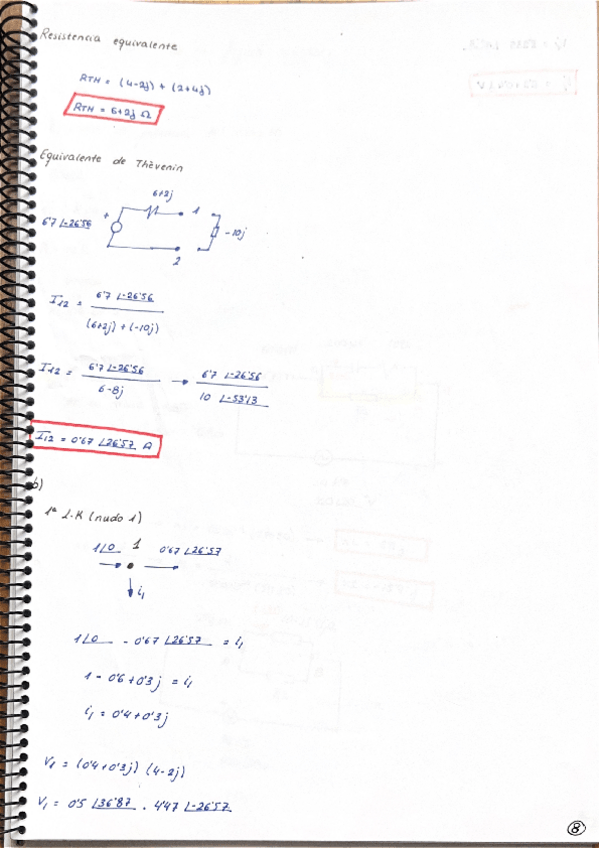 Resistencia equivalente
RTH = (4-2j) + (2+4j)
RTH = 6+2j Ω
Equivalente de Thèvenin
6+2j
6'7 ∠-26'56 + 1 -10j
2
I12 = 6'7 ∠-26'56 / (6+2j) + (-10j)
I12 = 6'7 ∠-26'56 / 6-8j → 6'7 ∠-26'56 / 10 ∠-53'13
I12 = 0'67 ∠26'57 A
b)
1ª L.K (nudo 1)
1∠0 1 0'67 ∠26'57
i1
1∠0 - 0'67 ∠26'57 = i1
1 - 0'6 + 0'3j = i1
i1 = 0'4 + 0'3j
V1 = (0'4+0'3j) (4-2j)
V1 = 0'5 ∠36'87 . 4'47 ∠-26'57
8